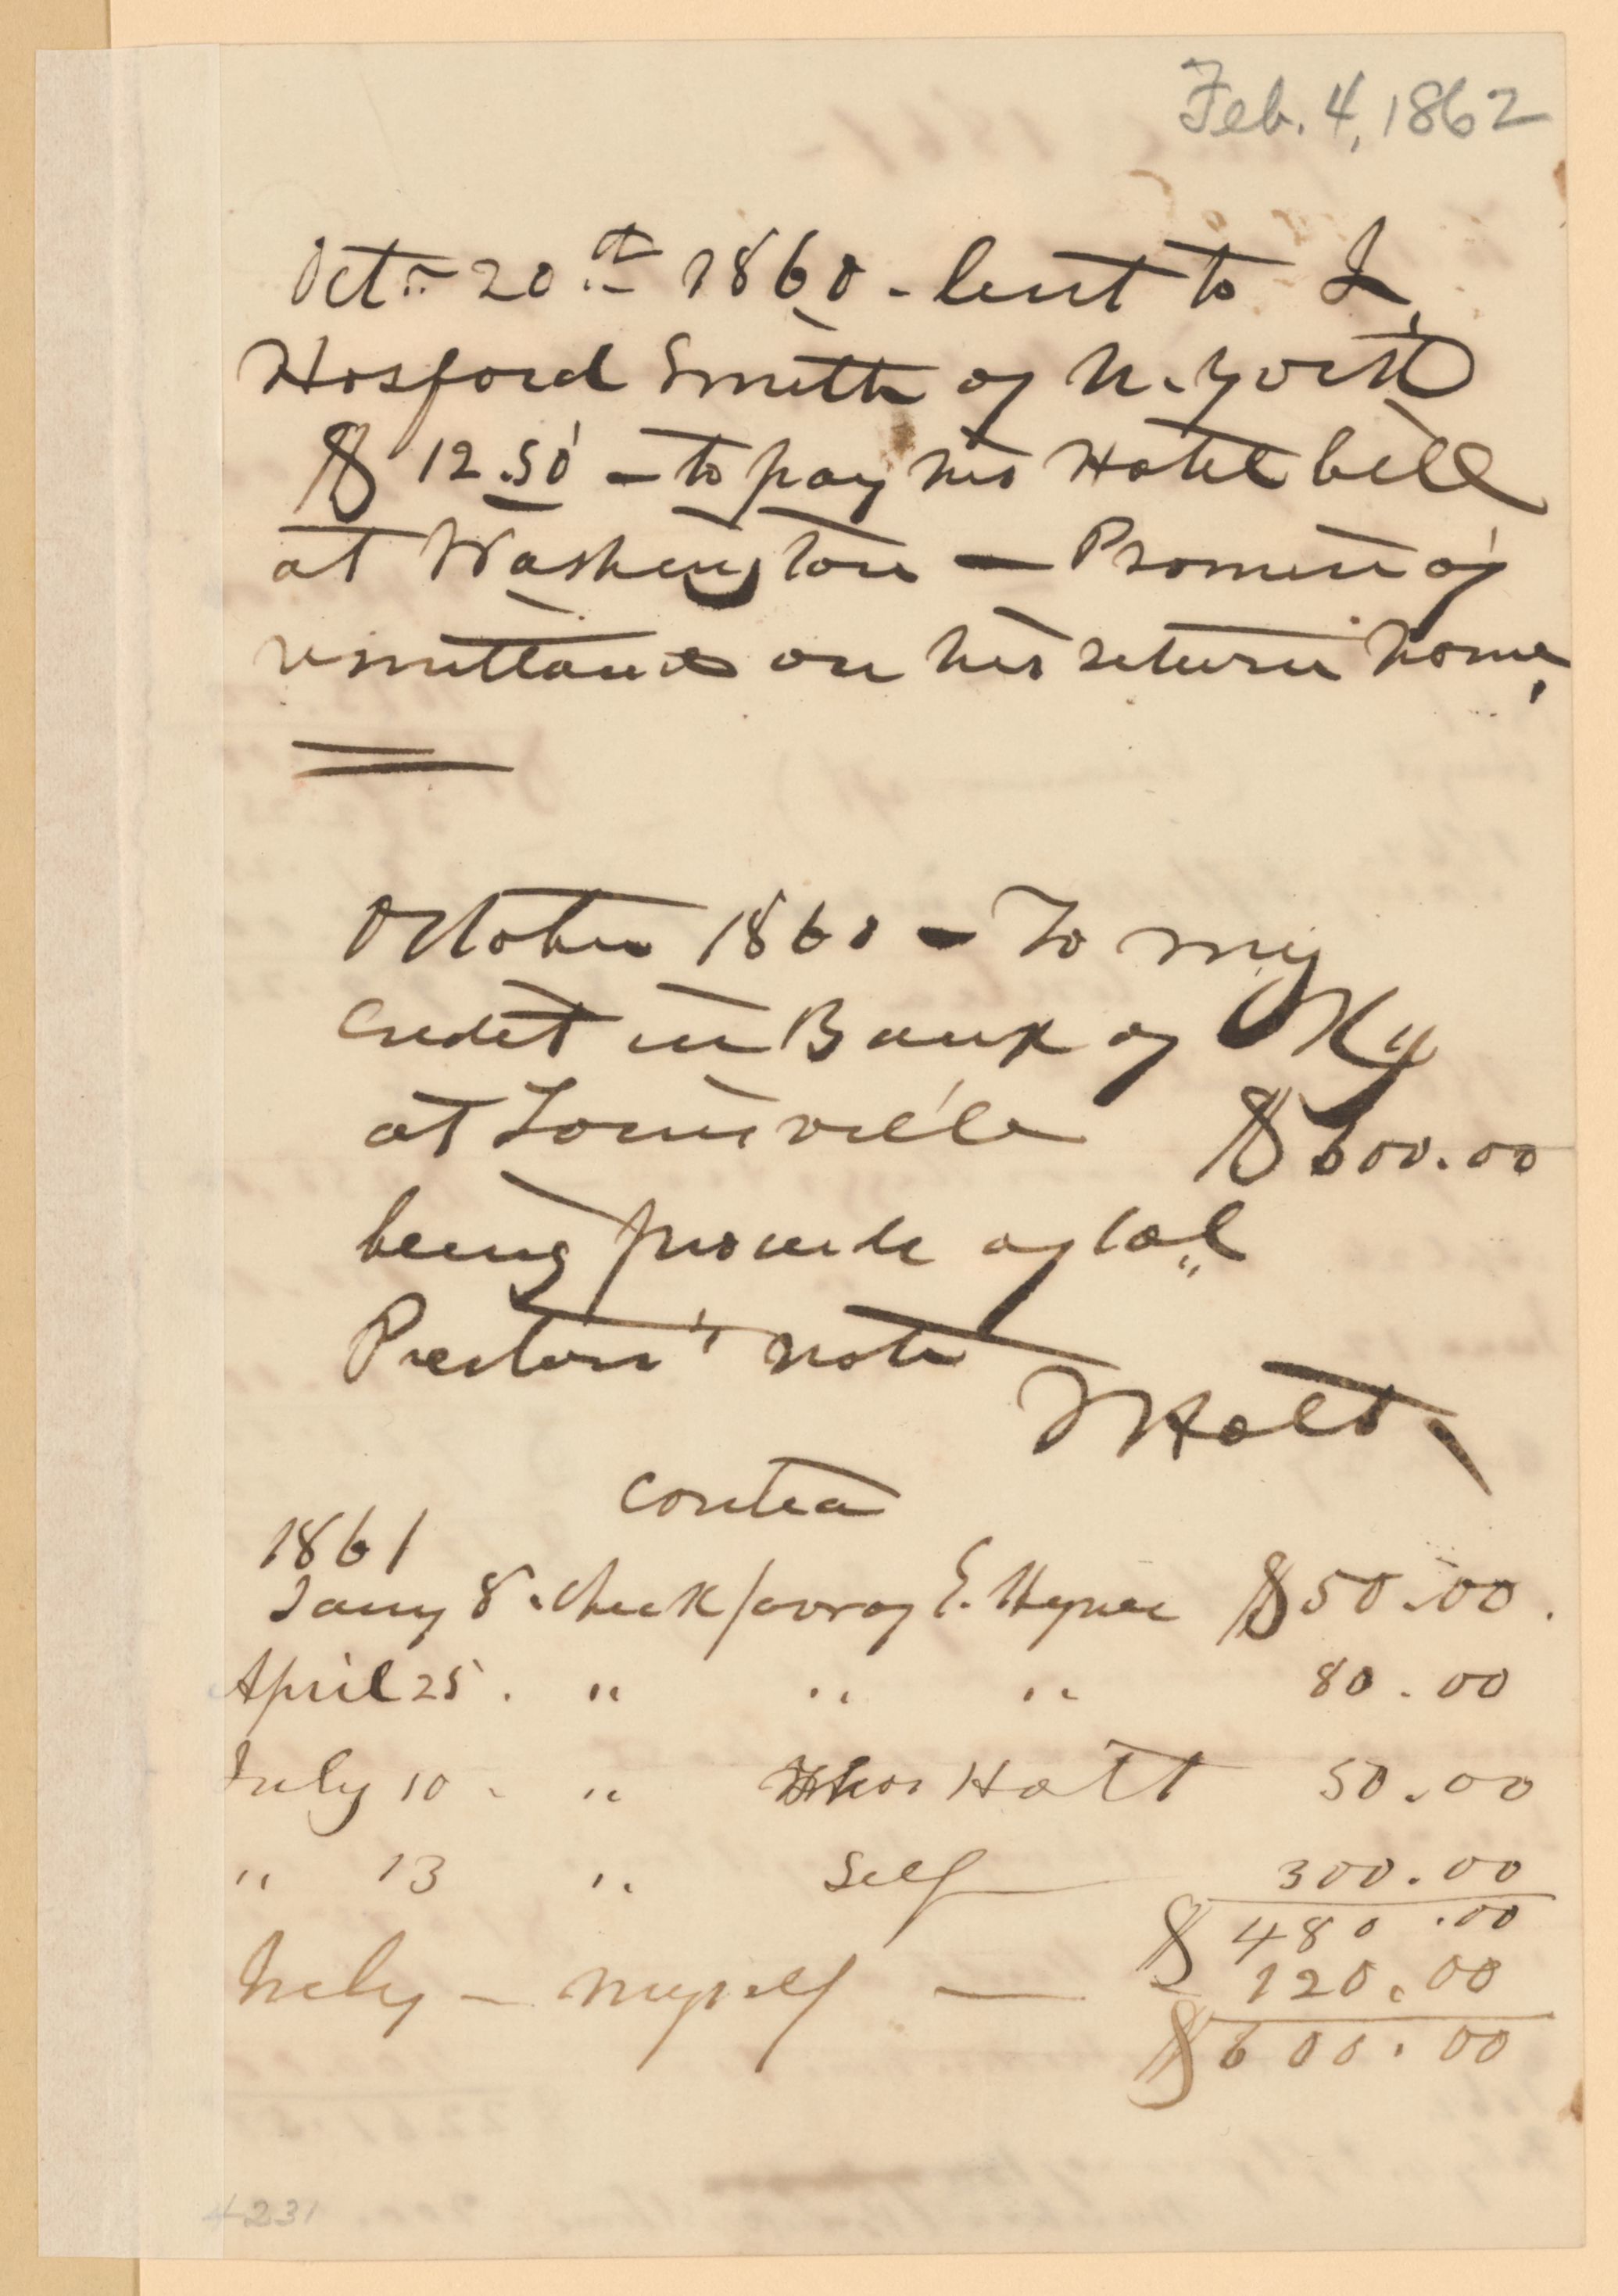 Feb. 4, 1862
Oct. 20th 1860 - lent to J.
Hosford Smith of N. York
$12.50 - to pay his Hotel bill
at Washington — Promise of
remittance on his return home,
October 1860 - To my
credit in Bank of Ky
at Louisville $600.00
being proceeds of Col
Preston's note
J Holt
Contra
1861
Jany 8. Check favor of E. Hynes $50.00.
April 25. " " " 80.00
July 10 - " Thos Holt 50.00
" 13 " Self 300.00
$480.00
July - myself — 120.00
$600.00
4231